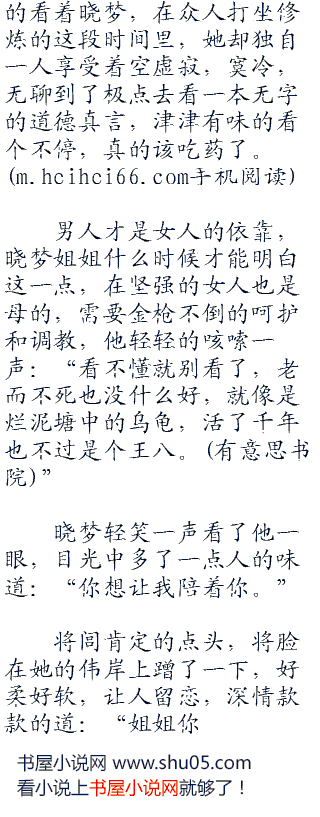 的看着晓梦，在众人打坐修
炼的这段时间里，她却独自
一人享受着空虚寂，寞冷，
无聊到了极点去看一本无字
的道德真言，津津有味的看
个不停，真的该吃药了。
(m.hcihci66.com手机阅读)
男人才是女人的依靠，
晓梦姐姐什么时候才能明白
这一点，在坚强的女人也是
母的，需要金枪不倒的呵护
和调教，他轻轻的咳嗦一
声：“看不懂就别看了，老
而不死也没什么好，就像是
烂泥塘中的乌龟，活了千年
也不过是个王八。(有意思书
院)”
晓梦轻笑一声看了他一
眼，目光中多了一点人的味
道：“你想让我陪着你。”
将闾肯定的点头，将脸
在她的伟岸上蹭了一下，好
柔好软，让人留恋，深情款
款的道：“姐姐你
书屋小说网 www.shu05.com
看小说上书屋小说网就够了！